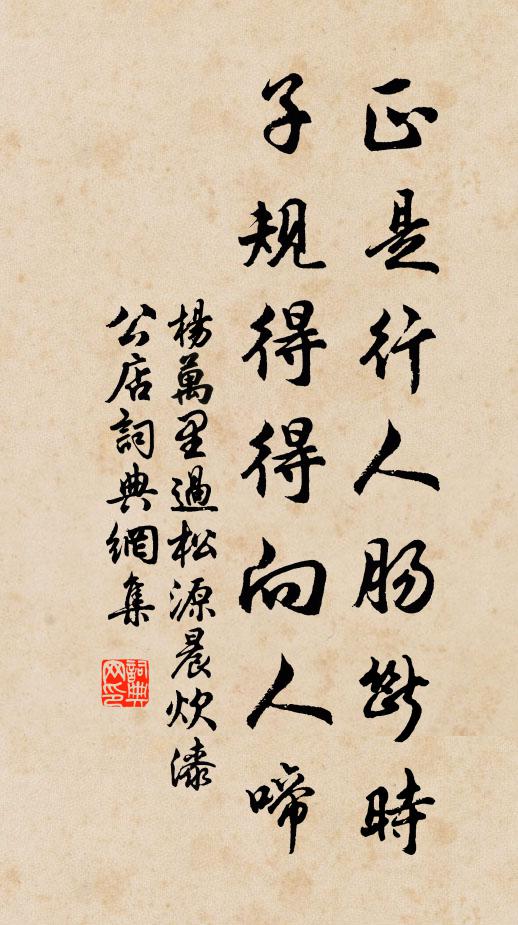 正是行人肠斷時
子規得得向人啼
楊萬里過松源晨炊漆
公店詞典網集
詞典
网印